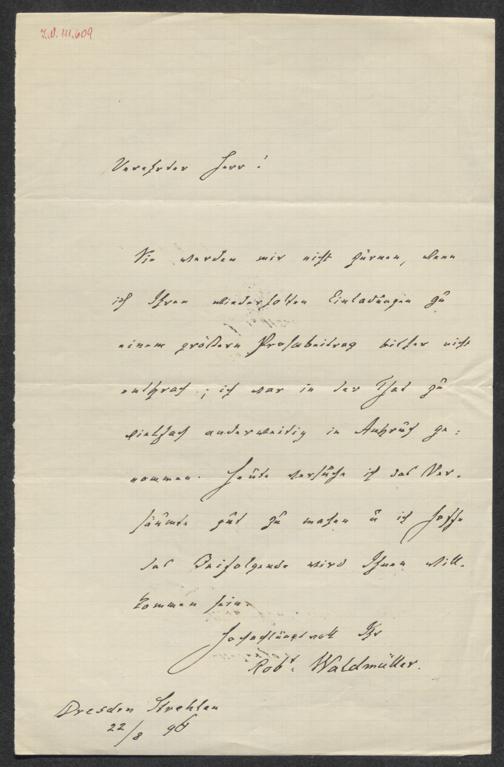 Z.N. III.609
Verehrter Herr!
Sie werden mir nicht zürnen, wenn
ich Ihren wiederholten Einladungen zu
einem größern Prosabeitrag bisher nicht
entsprach; ich war in der That zu
vielfach anderweitig in Anspruch ge-
nommen. Heute versuche ich das Ver-
säumte gut zu machen u ich hoffe
das Beifolgende wird Ihnen will-
kommen sein.
Hochachtungsvoll Ihr
Robt. Waldmüller.
Dresden Strehlen
22/8